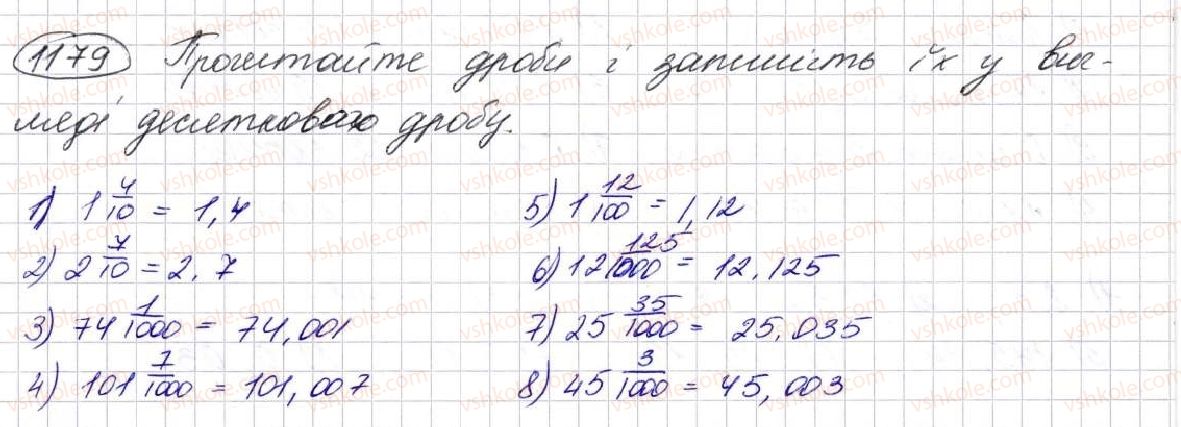 1179 Прочитайте дроби і запишіть їх у виг-
ляді десяткового дробу.
1) 1 4/10 = 1,4
2) 2 7/10 = 2,7
3) 74 1/1000 = 74,001
4) 101 7/1000 = 101,007
5) 1 12/100 = 1,12
6) 12 125/1000 = 12,125
7) 25 35/1000 = 25,035
8) 45 3/1000 = 45,003
vshkole.com